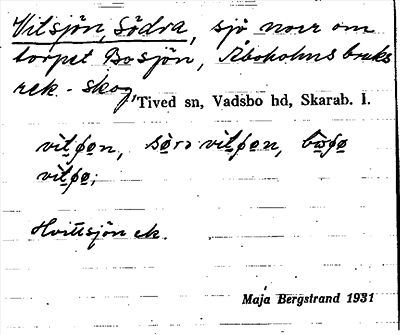 Vitsjön, Södra, sjö norr om
torpet Bosjön, Åboholms bruks
rek. skog,
Tived sn, Vadsbo hd, Skarab. l.
Hvittsjön ek.
Maja Bergstrand 1931